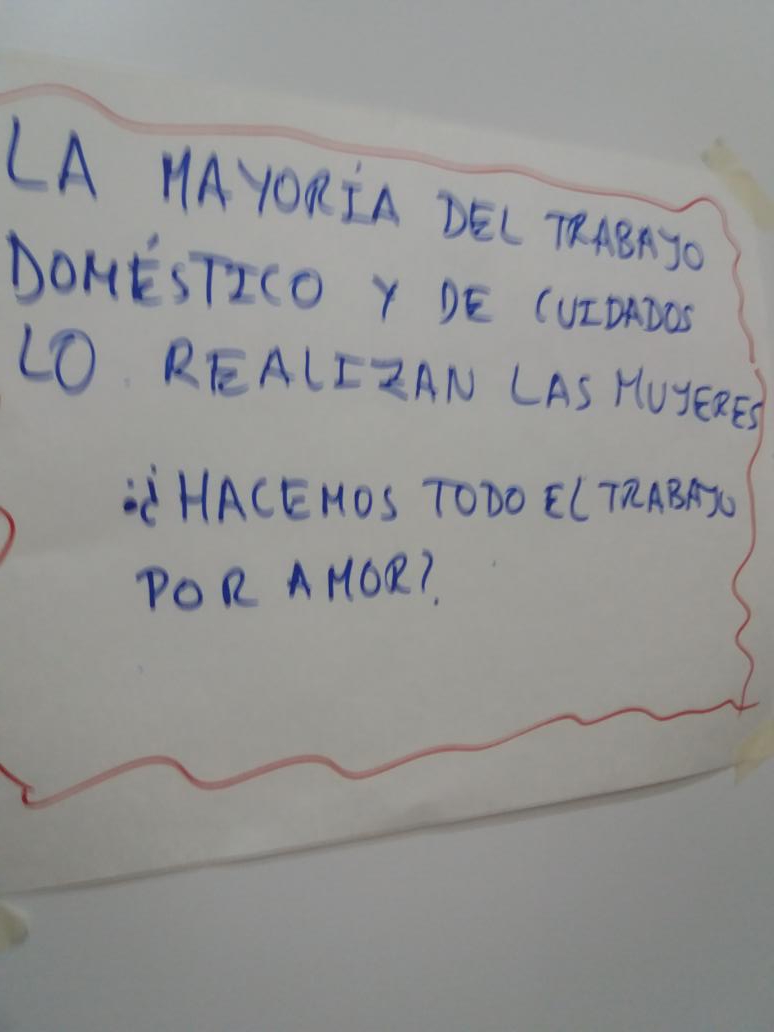 LA MAYORÍA DEL TRABAJO
DOMÉSTICO Y DE CUIDADOS
LO REALIZAN LAS MUJERES
¿HACEMOS TODO EL TRABAJO
POR AMOR?